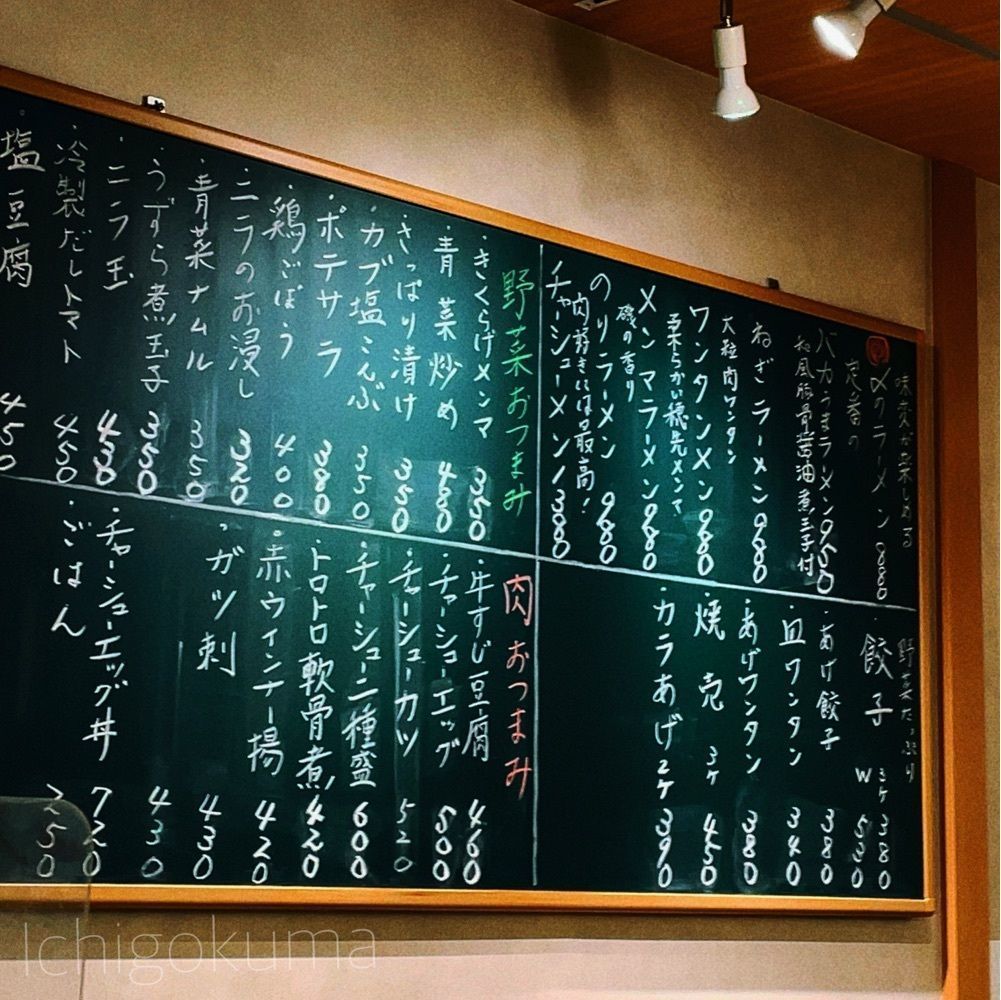 味変が楽しめる
〆のラーメン 880
定番の
バカうまラーメン 950
和風豚骨醤油煮玉子付
ねぎラーメン 980
大粒肉ワンタン
ワンタンメン 980
柔らかい穂先メンマ
メンマラーメン 980
磯の香り
のりラーメン 980
肉好きには最高!
チャーシューメン 1380
野菜おつまみ
・きくらげメンマ 350
・青菜炒め 480
・さっぱり漬け 350
・カブ塩こんぶ 350
・ポテサラ 380
・鶏ごぼう 400
・ニラのお浸し 320
・青菜ナムル 350
・うずら煮玉子 350
・ニラ玉 430
・冷製だしトマト 450
・塩豆腐 450
野菜たっぷり
・餃子 3ケ 380
W 530
・あげ餃子 380
・皿ワンタン 340
・あげワンタン 380
・焼売 3ケ 450
・カラあげ 2ケ 390
肉おつまみ
・牛すじ豆腐 460
・チャーシューエッグ 500
・チャーシューカツ 520
・チャーシュー二種盛 600
・トロトロ軟骨煮 420
・赤ウインナー揚 420
・ガツ刺 430
430
・チャーシューエッグ丼 720
・ごはん 250
Ichigokuma